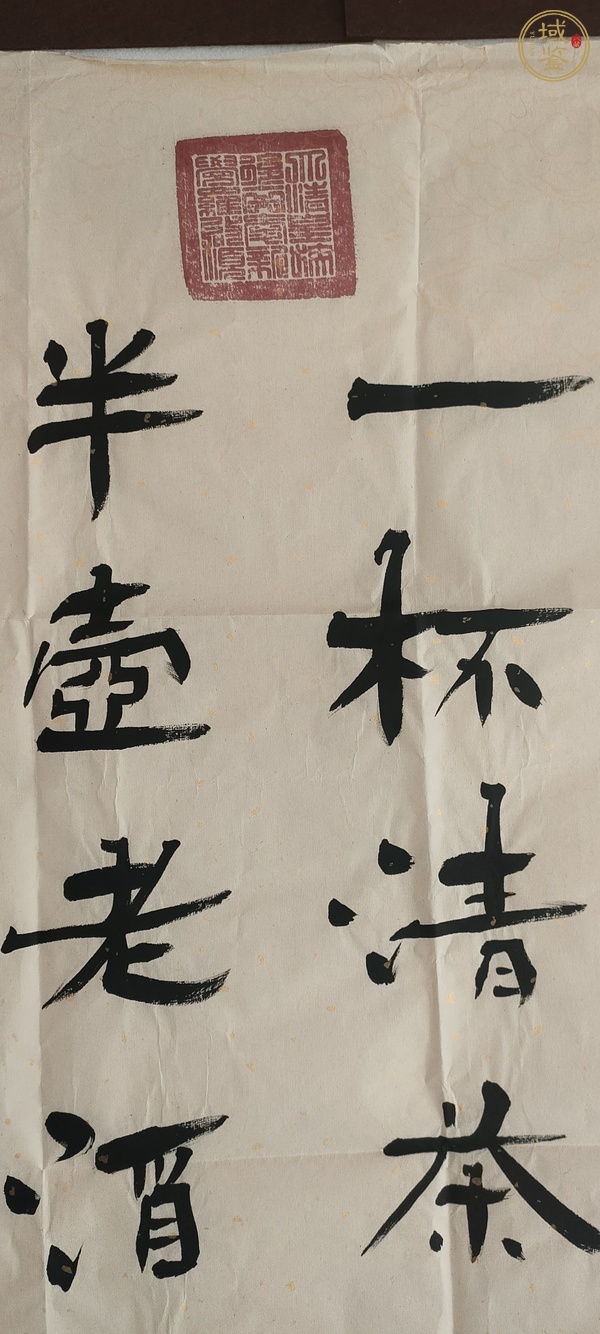 一杯清茶
半壶老酒
域鉴